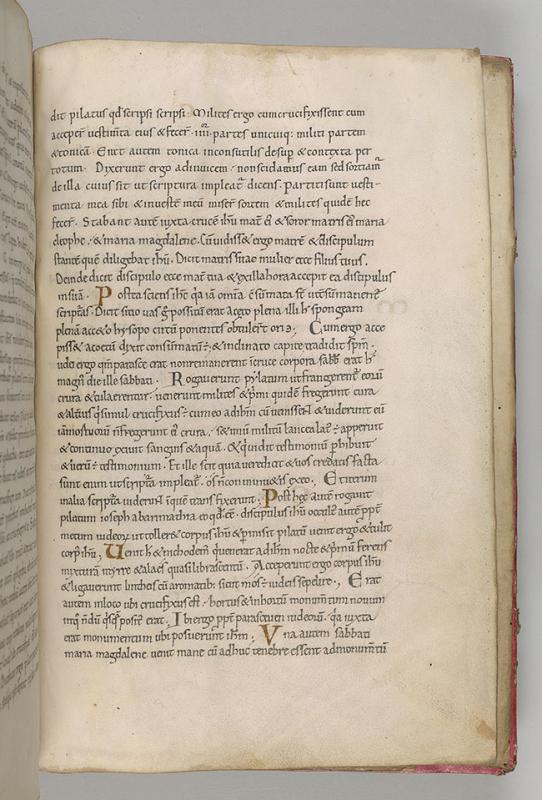 dit pilatus qđ scripsi scripsi · Milites ergo cum crucifixissent eum
acceper̄ vestim̄ta eius & fecer̄ · iiii · partes unicuiq: militi partem
& tonicā · Erat autem tonica inconsutilis desup̄ & contexta per
totum · Dixerunt ergo adinvicem · non scidamus eam sed sortiam̄
de illa cuius sit ut scriptura impleat̄ dicens · Partiti sunt vesti-
menta mea sibi & in vestē meā miser̄ sortem & milites quidē hec
fecer̄ · Stabant autē iuxta crucē ihū mater ei & soror matris ei maria
cleophe · & maria magdalene · Cū vidiss& ergo matrē & discipulum
stantē quē diligebat ihs̄ · Dicit matri suae mulier ecce filius tuus ·
Deinde dicit discipulo ecce mat̄ tua & ex illa hora accepit ea discipulus
in suā · Postea sciens ihs̄ q̄a iā omīa
script̄a · Dicit sitio vas ḡ positū erat aceto plenā illi h̄ spongeam
plenā acc&o hysopo circū ponentes obtuler̄ ori ei · Cum ergo acce
piss& acetū dixit consūmatū ÷ & inclinato capite tradidit sp̄m ·
iudei ergo qm̄ parascē erat non remanerent ī cruce corpora sabb̄ erat h̄
magn̄ die ille sabbati · Rogaverunt pylatum ut frangerent̄ eorū
crura & tollerentur · venerunt milites & p̄mi quidē fregerunt cura
& alt̄ius q̄ simul crucifixus ÷ cum eo ad ihm̄ cū veniss̄ & viderunt eū
iā mortuū n̄ fregerunt ei crura · sed unus militū lancea lat̄ ÷ apperuit
& continuo exivit sanguis & aquā · & q̄ vidit testimoniū p̄hibuit
& verū ÷ testimonium · Et ille scit quia vere dicit & vos credatis facta
sunt enim ut script̄a impleat̄ · os n̄ comminu&is ex eo · Et iterum
in alia script̄a videbun̄ ī quē transfixerunt · Post hec autē rogavit
pilatum ioseph ab arimathia eo qđ eēt discipulus ihū occulte autē pp̄t
metum iudeor̄ ut toller& corpus ihū & p̄misit pilatū venit ergo & tulit
corp̄ ihū · Venit h̄ & nichodem̄ q̄ venerat ad ihm̄ nocte p̄mū ferens
mixturā mirre & aloes quasi libras centū · Acceperunt ergo corpus ihū
& ligaverunt lintheis cū aromatib: sicut mos ÷ iudeis sepelire · Erat
autem in loco ubi crucifixus est · hortus & in hortū monumtum novum
in q̄ n̄dū q̄sq̄ posit̄ erat · Ibi ergo pp̄t parasceuen iudeorū · q̄a iuxta
erat monumentum ubi posuerunt ihm̄ · Una autem sabbati
maria magdalene venit mane cū adhuc tenebre essent ad monumtū